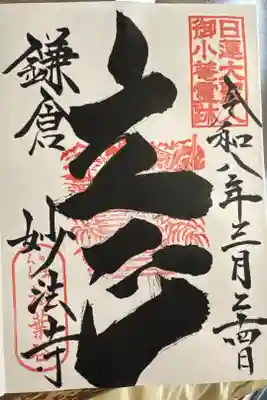 日蓮大聖人
御小菴霊跡
令和八年三月二十四日
立正
鎌倉
妙法寺